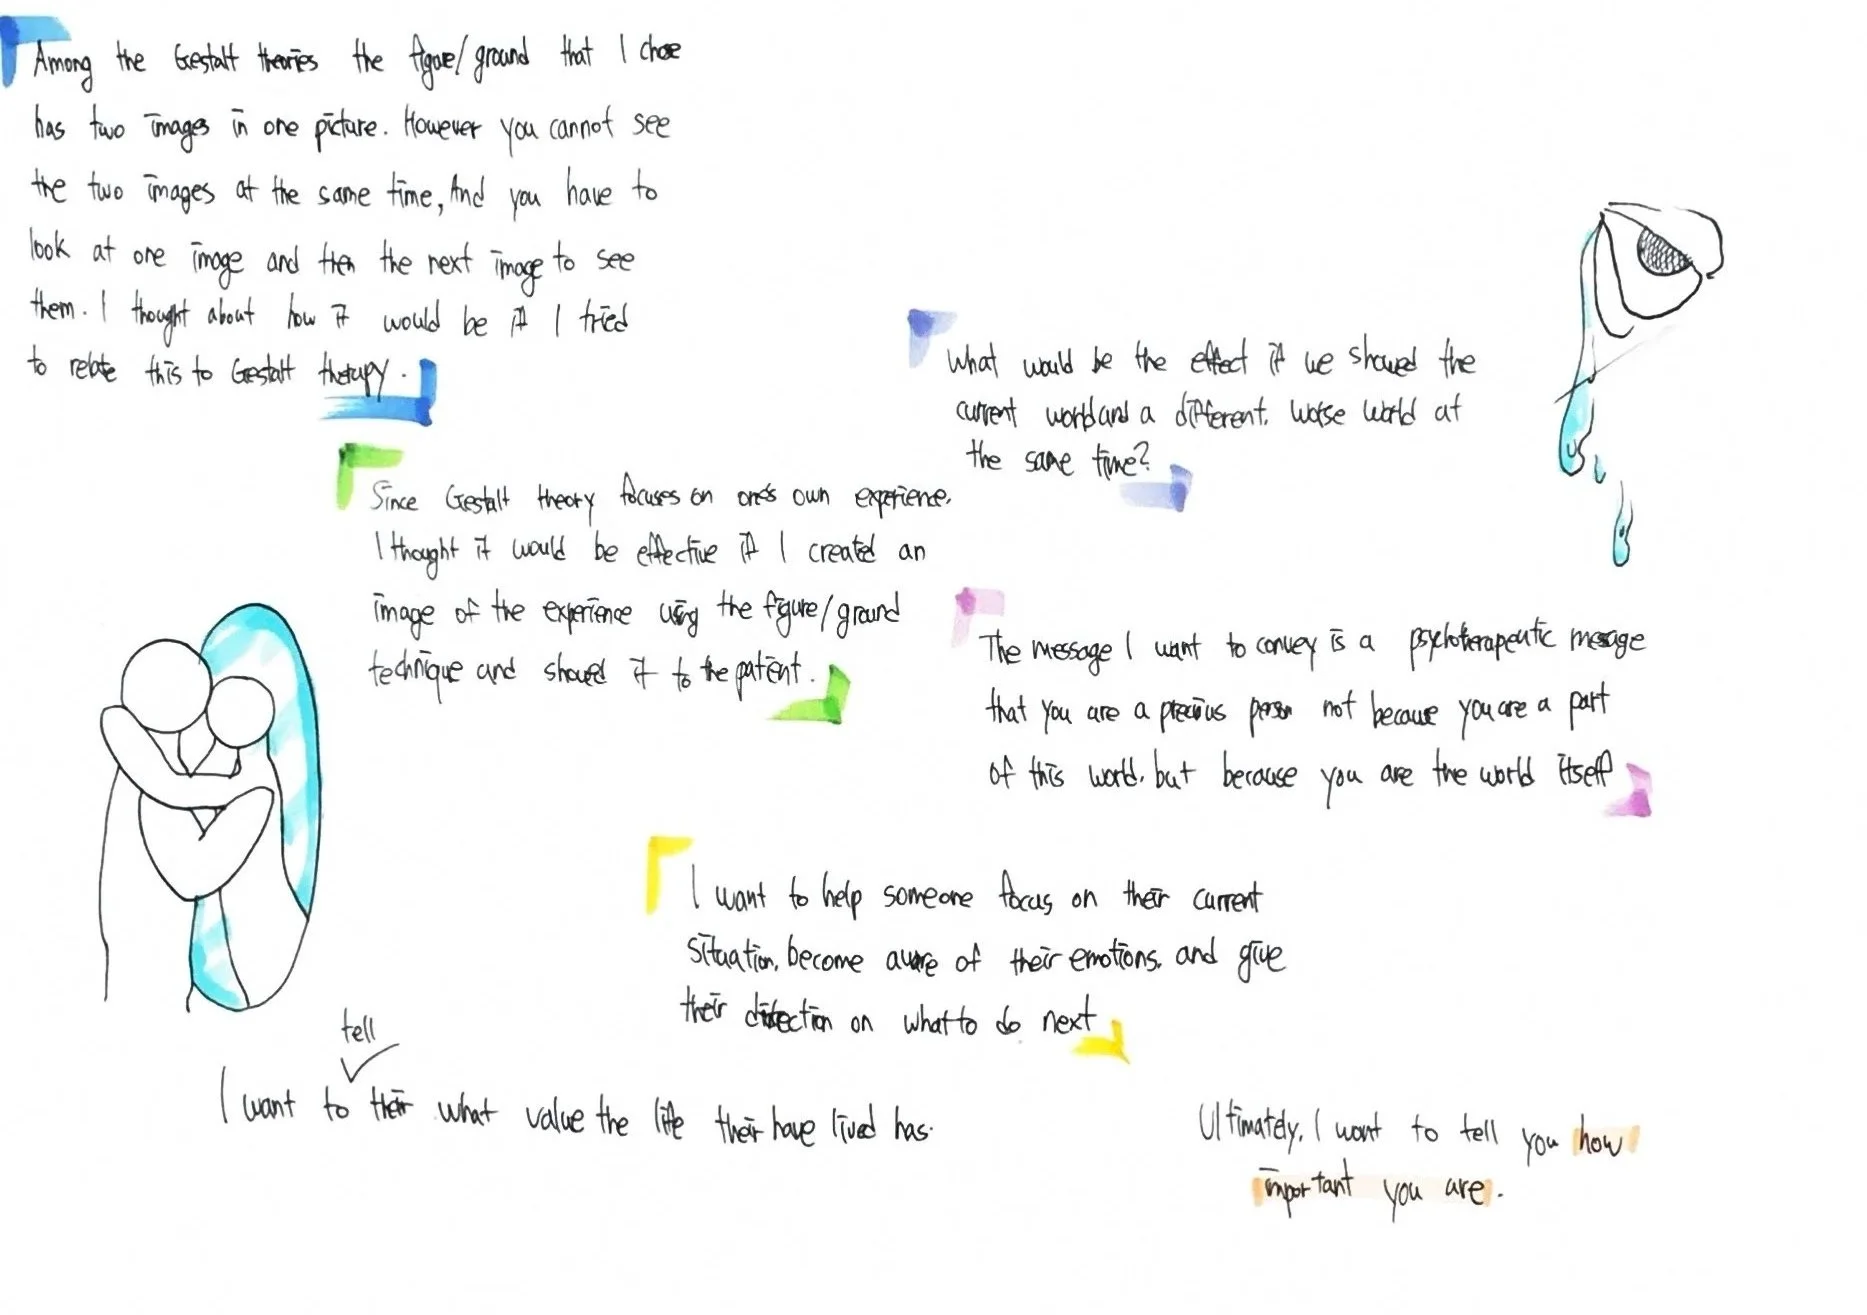 Among the Gestalt theories the figure/ground that I chose
has two images in one picture. However you cannot see
the two images at the same time, And you have to
look at one image and then the next image to see
them. I thought about how it would be if I tried
to relate this to Gestalt therapy.
Since Gestalt theory focuses on one's own experience,
I thought it would be effective if I created an
image of the experience using the figure/ground
technique and showed it to the patient.
What would be the effect if we showed the
current world and a different, worse world at
the same time?
The message I want to convey is a psychotherapeutic message
that you are a precious person not because you are a part
of this world, but because you are the world itself
I want to help someone focus on their current
situation, become aware of their emotions, and give
their direction on what to do next
tell
I want to their what value the life their have lived has.
Ultimately, I want to tell you how
important you are.